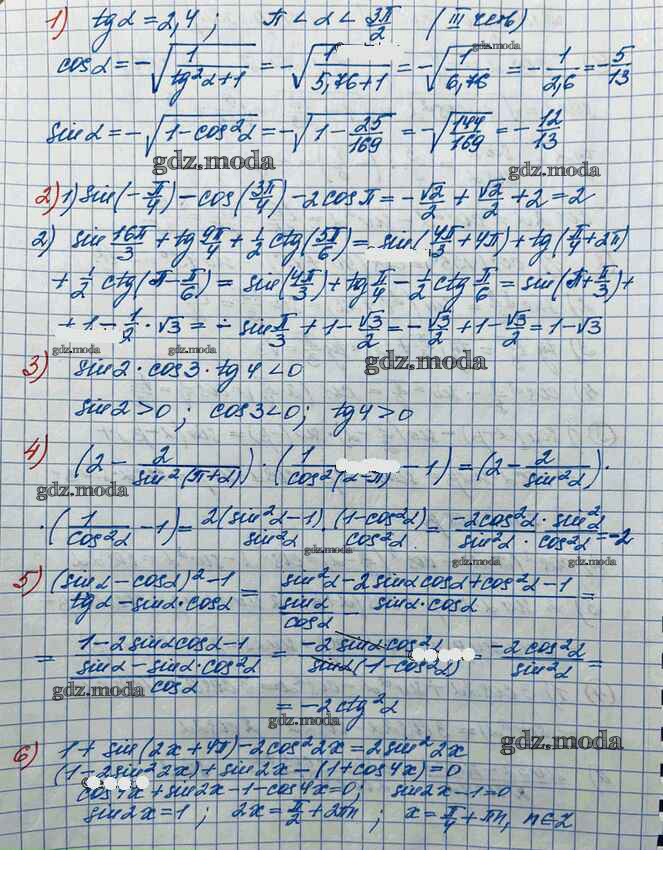 1) tg α = 2,4 ; π < α < 3π/2 (III четв)
cos α = -√(1/(tg²α+1)) = -√(1/(5,76+1)) = -√(1/6,76) = -1/2,6 = -5/13
sin α = -√(1-cos²α) = -√(1-25/169) = -√(144/169) = -12/13
gdz.moda
2) 1) sin(-π/4) - cos(3π/4) - 2cos π = -√2/2 + √2/2 + 2 = 2
gdz.moda
2) sin 16π/3 + tg 9π/4 + 1/2 ctg(5π/6) = sin(4π/3 + 4π) + tg(π/4 + 2π)
+ 1/2 ctg(π - π/6) = sin(4π/3) + tg π/4 - 1/2 ctg π/6 = sin(π + π/3) +
+ 1 - 1/2 · √3 = - sin π/3 + 1 - √3/2 = -√3/2 + 1 - √3/2 = 1 - √3
gdz.moda gdz.moda gdz.moda
3) sin 2 · cos 3 · tg 4 < 0
gdz.moda
sin 2 > 0 ; cos 3 < 0 ; tg 4 > 0
4) (2 - 2/sin²(π+α)) · (1/cos²(α-π) - 1) = (2 - 2/sin²α) ·
gdz.moda
· (1/cos²α - 1) = 2(sin²α - 1)/sin²α · (1-cos²α)/cos²α = -2cos²α · sin²α/sin²α · cos²α = -2
gdz.moda gdz.moda
5) (sin α - cos α)² - 1/tg α - sin α · cos α = sin²α - 2 sin α cos α + cos²α - 1/sin α/cos α - sin α · cos α =
= 1 - 2 sin α cos α - 1/sin α - sin α · cos²α/cos α = -2 sin α cos²α/sin α(1-cos²α) = -2cos²α/sin²α =
gdz.moda gdz.moda
= -2ctg²α
gdz.moda
6) 1 + sin(2x + 4π) - 2cos²2x = 2sin²2x
gdz.moda
(1 - 2sin²2x) + sin 2x - (1 + cos 4x) = 0
cos 4x + sin 2x - 1 - cos 4x = 0 ; sin 2x - 1 = 0
gdz.moda
sin 2x = 1 ; 2x = π/2 + 2πn ; x = π/4 + πn, n∈Z